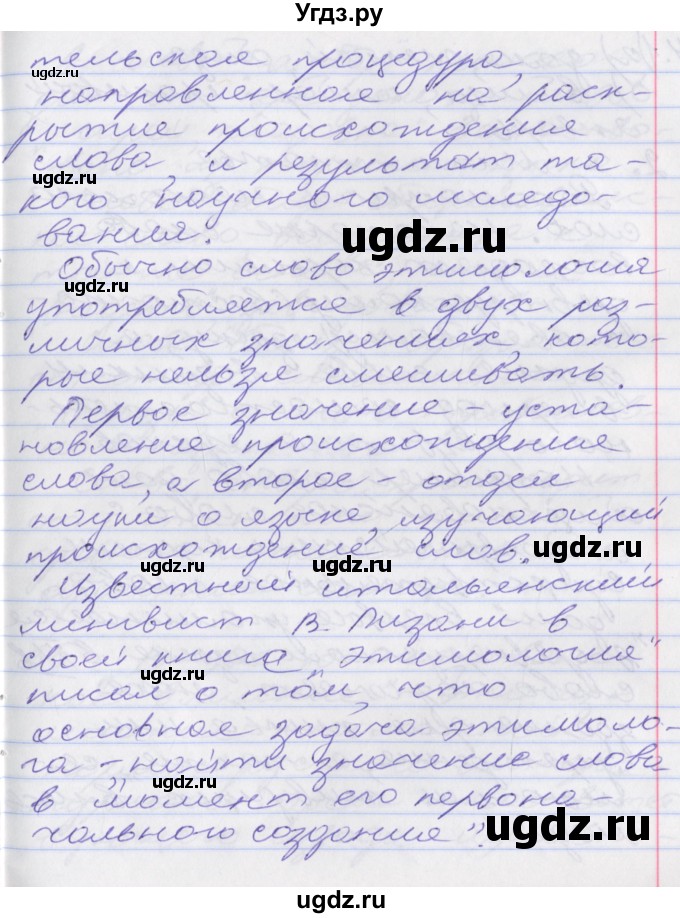 Угдз.ру
тельская процедура,
направленная на раск-
рытие происхождения
слова, и результат та-
кого научного исследо-
вания.
Обычно слово этимология
употребляется в двух раз-
личных значениях, кото-
рые нельзя смешивать.
Первое значение - уста-
новление происхождения
слова, а второе - отдел
науки о языке, изучающий
происхождение слов.
Известный итальянский
лингвист В. Пизани в
своей книга „Этимология"
писал о том, что
основная задача этимоло-
га - найти значение слова
в „момент его первона-
чального создания".
ugdz.ru
ugdz.ru
ugdz.ru
ugdz.ru
ugdz.ru
ugdz.ru
ugdz.ru
ugdz.ru
ugdz.ru
ugdz.ru